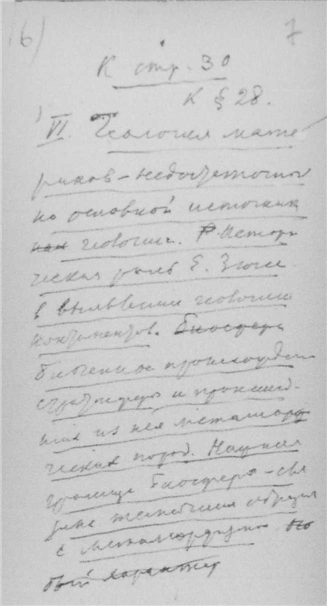 6)
7
К стр. 30
К § 28.
VI. Геология мате
риков – недостаточная
но основной источник
геологии. Истори
ческая роль Е. Зюсса
в выявлении геологии
континентов. Биосфера
Биогенное происхожден
стратисферы и происшед-
ших из нея метаморф
ческих пород. Нижняя
граница биосферы – свя
с метаморфизмом.
характер